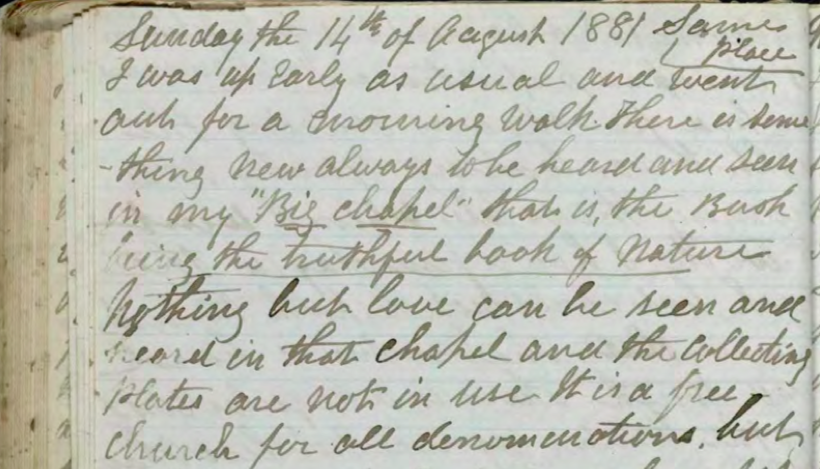 Sunday the 14th of August 1881 Same
place
I was up Early as usual and went
out for a morning walk. There is some
-thing new always to be heard and seen
in my "Big chapel" that is, the Bush
being the truthful book of Nature
Nothing but love can be seen and
heard in that chapel and the collecting
plates are not in use It is a free
church for all denominations. but